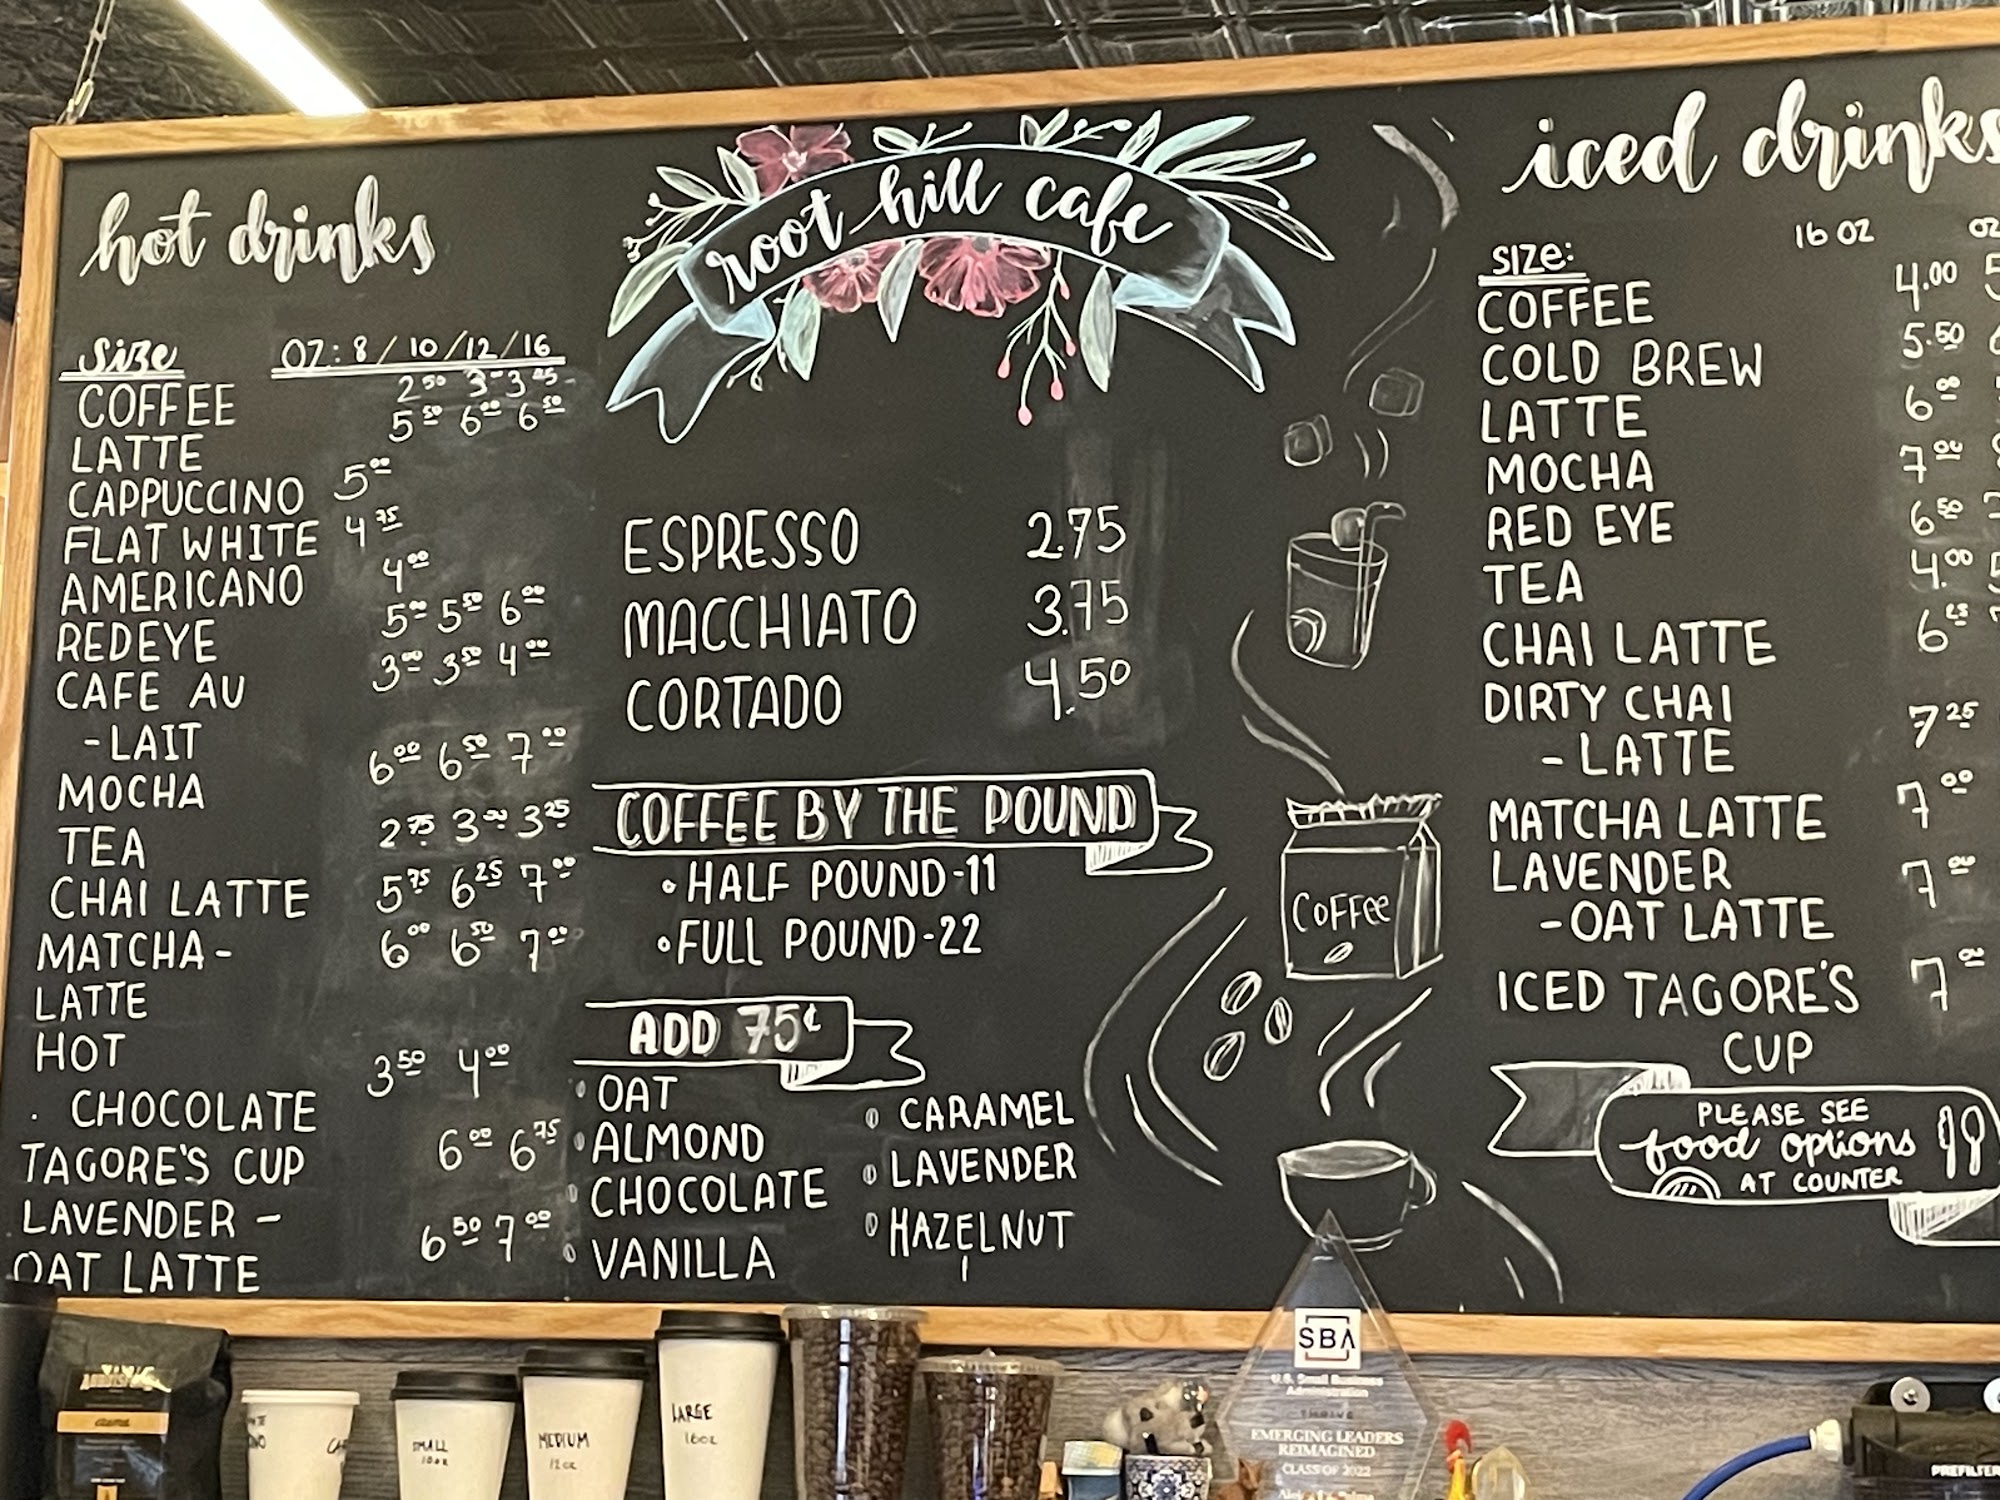 hot drinks
Size OZ: 8 / 10 / 12 / 16
COFFEE 2.50 3.00 3
LATTE 5.50 6.00 6.50
CAPPUCCINO 5.00
FLAT WHITE 4.75
AMERICANO 4.00
REDEYE 5.00 5.50 6.00
CAFE AU 3.00 3.50 4.00
-LAIT
MOCHA 6.00 6.50 7.00
TEA 2.75 3.00 3.25
CHAI LATTE 5.75 6.25 7.00
MATCHA- 6.00 6.50 7.00
LATTE
HOT
CHOCOLATE 3.50 4.00
TAGORE'S CUP 6.00 6.75
LAVENDER -
OAT LATTE 6.50 7.00
root hill cafe
ESPRESSO 2.75
MACCHIATO 3.75
CORTADO 4.50
COFFEE BY THE POUND
• HALF POUND-11
• FULL POUND-22
ADD 75¢
OAT
ALMOND
CHOCOLATE
VANILLA
CARAMEL
LAVENDER
HAZELNUT
COFFee
iced drinks
SIZE: 16 OZ OZ
COFFEE 4.00
COLD BREW 5.50
LATTE 6.00
MOCHA 7.00
RED EYE 6.50
TEA 4.00
CHAI LATTE 6.25
DIRTY CHAI
- LATTE 7.25
MATCHA LATTE 7.00
LAVENDER
-OAT LATTE 7.00
ICED TAGORE'S 7.00
CUP
PLEASE SEE
food options
AT COUNTER
SMALL
10oz
MEDIUM
12oz
LARGE
16oz
SBA
U.S. Small Business
Administration
THRIVE
EMERGING LEADERS
REIMAGINED
CLASS OF 2022
PREFILTER